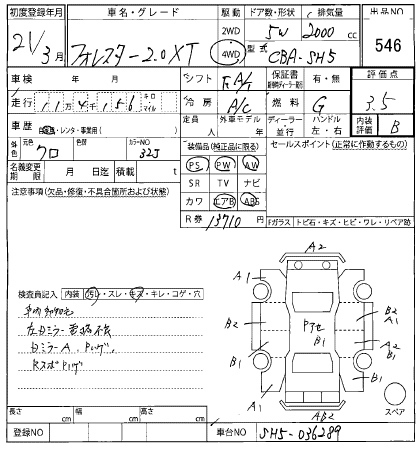 初度登録年月 車名・グレード 駆動 ドア数・形状 排気量 出品NO
21/3月 フォレスター2.0XT 2WD 5W 2000 cc 546
4WD 型式 CBA-SH5
車検 年 月 シフト FA/T 保証書 有・無 評価点
走行 11万4千156 キロ マイル 冷房 A/C 燃料 G 3.5
車歴 自家・レンタ・事業用( ) 定員 人 外車モデル 年 ディーラー 並行 ハンドル 左・右 内装評価 B
外色 元色 クロ 色替 カラーNO 32J 装備品(純正品に限る) セールスポイント(正常に作動するもの)
名義変更期限 月 日迄 積載 t PS PW AW
注意事項(欠品・修復・不具合箇所および状態) SR TV ナビ
カワ エアB ABS
R券 13710 Fガラス トビ石・キズ・ヒビ・ワレ・リペア跡
A2
A1
B2 A1
B2 Pアセ B1 A2 B2
B1
B1
A1 AB2 スペア
検査員記入 内装 汚レ・スレ・キズ・キレ・コゲ・穴
左ドミラー電格不良
ドミラーA、Pハゲ、
RスポPハゲ
長さ cm 幅 cm 高さ cm
登録NO 車台NO SH5-036289